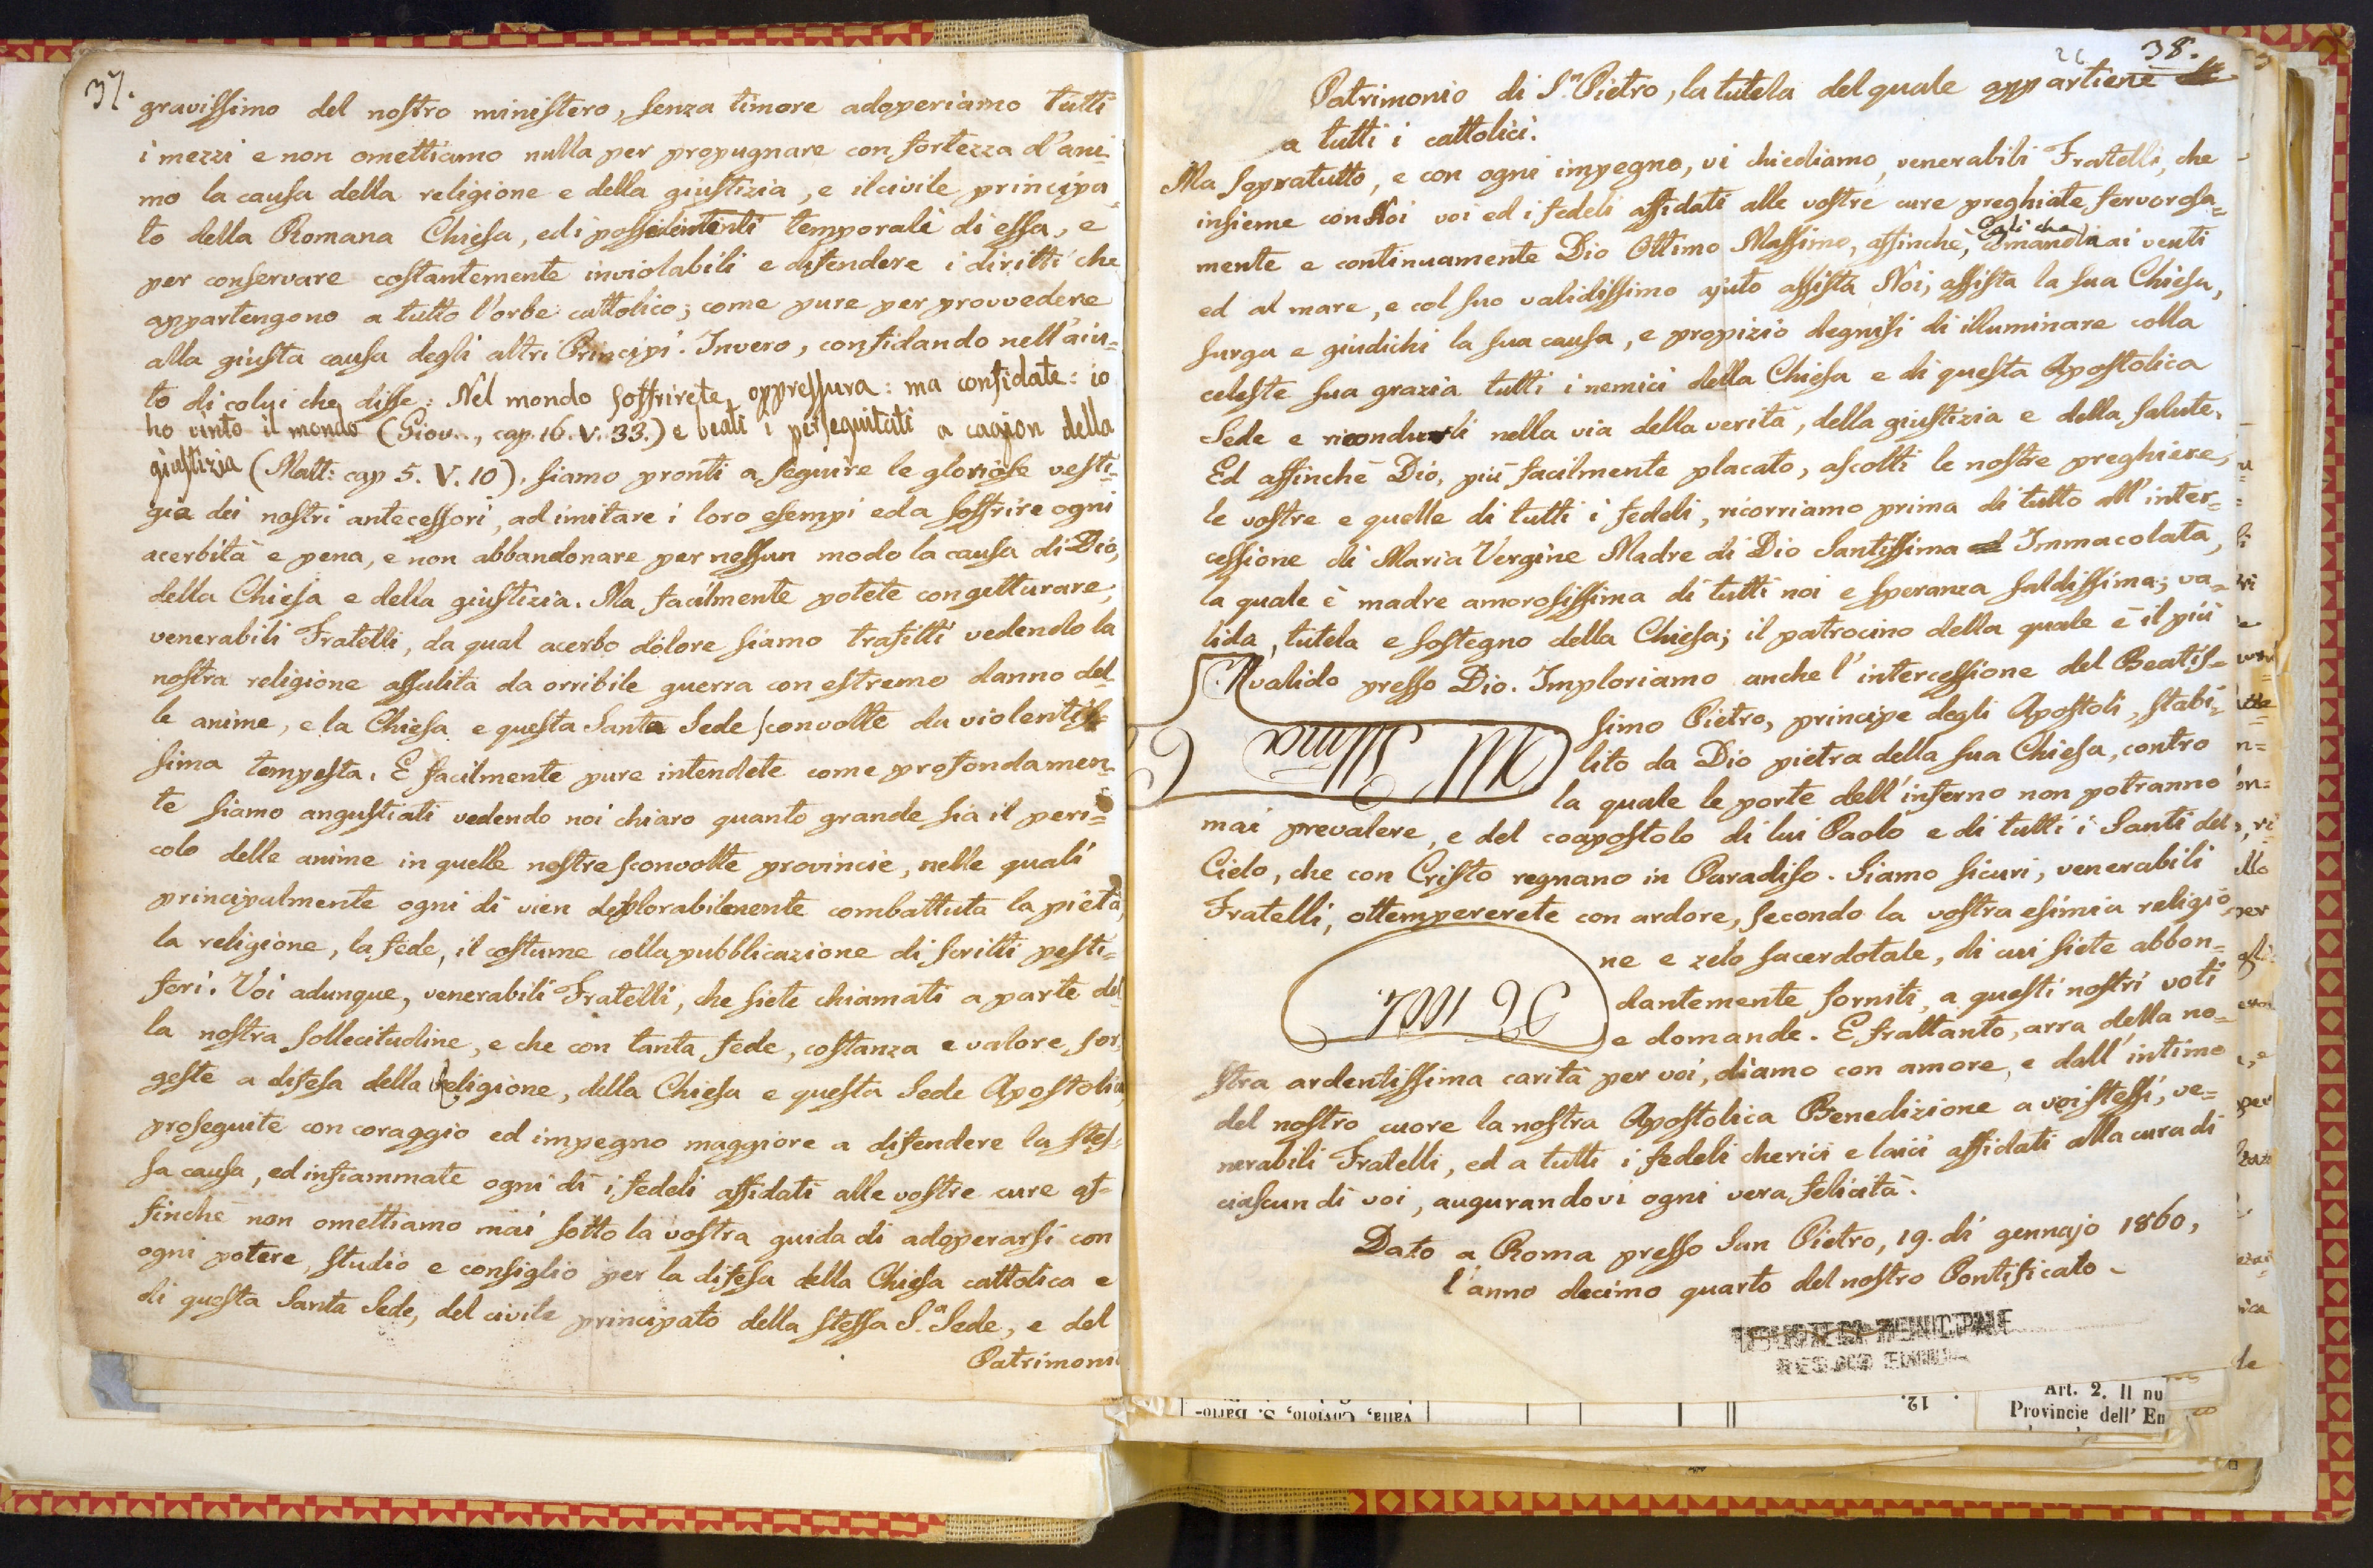 37.
gravissimo del nostro ministero, senza timore adoperiamo tutti
i mezzi e non omettiamo nulla per propugnare con fortezza d'ani-
mo la causa della religione e della giustizia, e il civile principa-
to della Romana Chiesa, ed i possedimenti temporali di essa, e
per conservare costantemente inviolabili e difendere i diritti che
appartengono a tutto l'orbe cattolico; come pure per provvedere
alla giusta causa degli altri Principi. Invero, confidando nell'aiu-
to di colui che disse: Nel mondo soffrirete oppressura: ma confidate: io
ho vinto il mondo (Giov.., cap. 16. V. 33.) e beati i perseguitati a cagion della
giustizia (Matt: cap 5. V. 10), siamo pronti a seguire le gloriose vesti-
gia dei nostri antecessori, ad imitare i loro esempi ed a soffrire ogni
acerbità e pena, e non abbandonare per nessun modo la causa di Dio,
della Chiesa e della giustizia. Ma facilmente potete congetturare,
venerabili Fratelli, da qual acerbo dolore siamo trafitti vedendo la
nostra religione assalita da orribile guerra con estremo danno del-
le anime, e la Chiesa e questa Santa Sede sconvolte da violentis-
sima tempesta. E facilmente pure intendete come profondamen-
te siamo angustiati vedendo noi chiaro quanto grande sia il peri=
colo delle anime in quelle nostre sconvolte provincie, nelle quali
principalmente ogni dì vien deplorabilmente combattuta la pietà,
la religione, la fede, il costume colla pubblicazione di scritti pesti=
feri. Voi adunque, venerabili Fratelli, che siete chiamati a parte del
la nostra sollecitudine, e che con tanta fede, costanza e valore sor
geste a difesa della Religione, della Chiesa e questa Sede Apostolica
proseguite con coraggio ed impegno maggiore a difendere la stes-
sa causa, ed infiammate ogni dì i fedeli affidati alle vostre cure af-
finche non omettiamo mai sotto la vostra guida di adoperarsi con
ogni potere, studio e consiglio per la difesa della Chiesa cattolica e
di questa Santa Sede, del civile principato della stessa S.a Sede, e del
Patrimoni
26 38.
Patrimonio di S.n Pietro, la tutela del quale appartiene
a tutti i cattolici.
Ma sopratutto, e con ogni impegno, vi chiediamo, venerabili Fratelli, che
insieme con Noi voi ed i fedeli affidati alle vostre cure preghiate fervorosa=
mente e continuamente Dio Ottimo Massimo, affinchè, Egli che comanda ai venti
ed al mare, e col suo validissimo ajuto assista Noi, assista la sua Chiesa,
surga e giudichi la sua causa, e propizio degnisi di illuminare colla
celeste sua grazia tutti i nemici della Chiesa e di questa Apostolica
Sede e ricondurli nella via della verità, della giustizia e della salute.
Ed affinchè Dio, più facilmente placato, ascolti le nostre preghiere,
le vostre e quelle di tutti i fedeli, ricorriamo prima di tutto all'inter=
cessione di Maria Vergine Madre di Dio Santissima Immacolata,
la quale è madre amorosissima di tutti noi e speranza saldissima; va=
lida, tutela e sostegno della Chiesa; il patrocino della quale è il più
valido presso Dio. Imploriamo anche l'intercessione del Beatis=
simo Pietro, principe degli Apostoli, stabi=
lito da Dio pietra della sua Chiesa, contro
la quale le porte dell'inferno non potranno
mai prevalere, e del coapostolo di lui Paolo e di tutti i Santi del
Cielo, che con Cristo regnano in Paradiso. Siamo sicuri, venerabili
Fratelli, ottempererete con ardore, secondo la vostra esimia religio
ne e zelo sacerdotale, di cui siete abbon=
dantemente forniti, a questi nostri voti
e domande. E frattanto, arra della no=
stra ardentissima carità per voi, diamo con amore, e dall'intimo
del nostro cuore la nostra Apostolica Benedizione a voi stessi, ve=
nerabili Fratelli, ed a tutti i fedeli cherici e laici affidati alla cura di
ciascun di voi, augurandovi ogni vera felicità.
Dato a Roma presso San Pietro, 19. di gennajo 1860,
l'anno decimo quarto del nostro Pontificato.
All Illma
BIBLIOTECA MUNICIPALE
REGGIO EMILIA
vana, Coviolo, S. Barto-
12.
Art. 2. Il nu
Provincie dell' Em